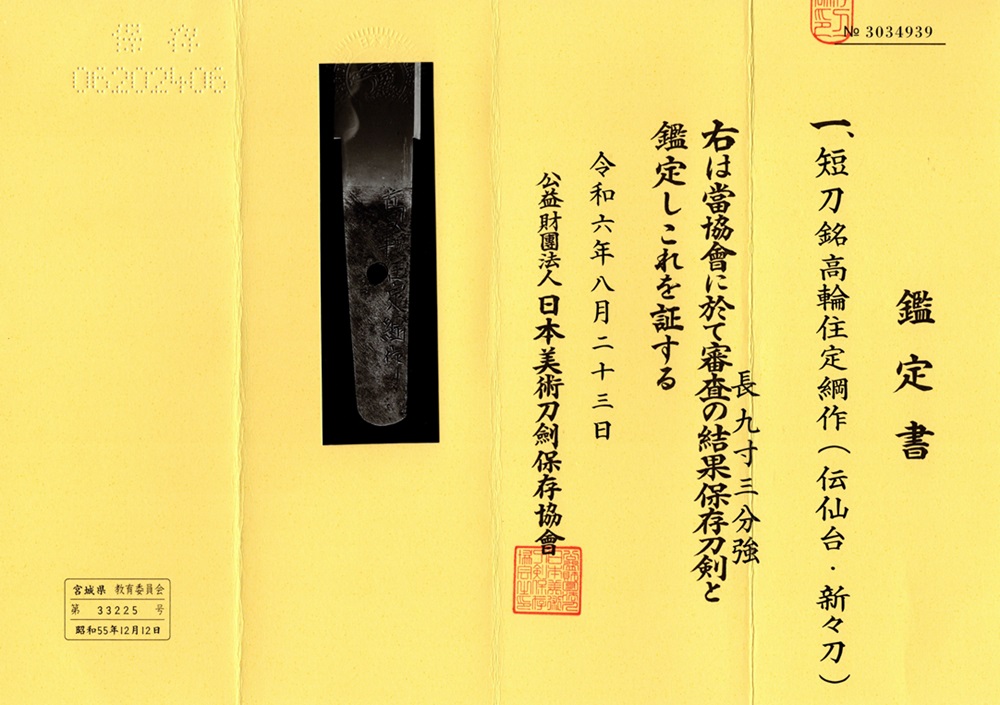 № 3034939
鑑定書
一、短刀銘高輪住定綱作(伝仙台・新々刀)
長九寸三分強
右は當協會に於て審査の結果保存刀剣と
鑑定しこれを証する
令和六年八月二十三日
公益財團法人日本美術刀劍保存協會
保存
06202406
宮城県 教育委員会
第 33225 号
昭和55年12月12日